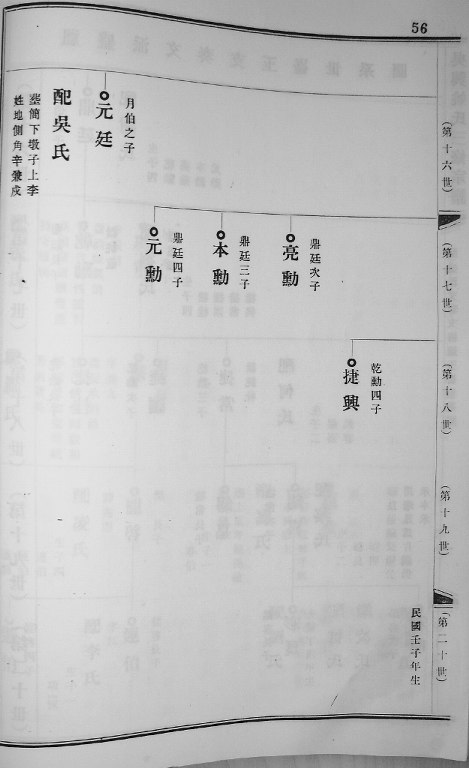 56
（第十六世）
（第十七世）
（第十八世）
（第十九世）
（第二十世）
民國壬子年生
乾勳四子
捷興
鼎廷次子
亮勳
鼎廷三子
本勳
鼎廷四子
元勳
月伯之子
元廷
配吳氏
塟簡下墩子上李
姓地側角辛兼戍